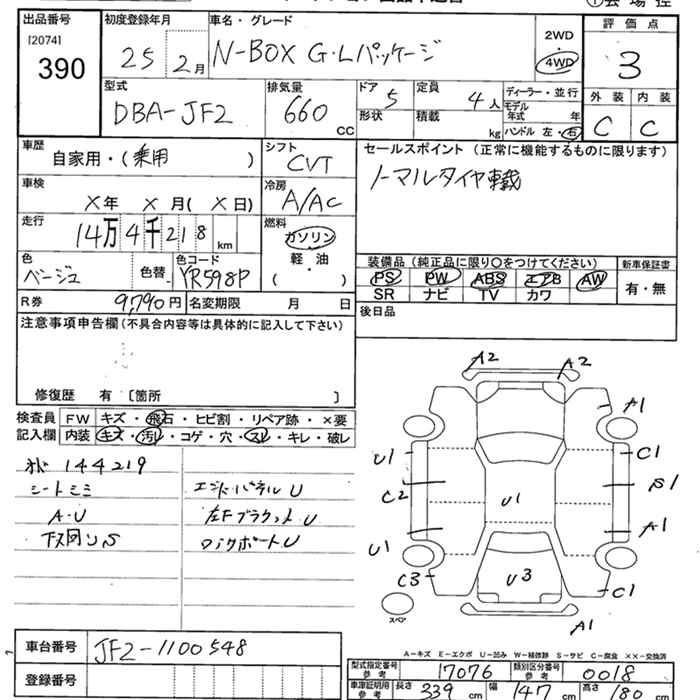 出品番号 初度登録年月 車名・グレード 評価点
[2074] 390
25 2月 N-BOX G・Lパッケージ 2WD 4WD 3
型式 排気量 ドア 定員 ディーラー・並行 外装 内装
DBA-JF2 660 CC 5 4人 モデル年式 年 C C
形状 積載 kg ハンドル 左・右
車歴 シフト セールスポイント(正常に機能するものに限ります)
自家用・(乗用 ) CVT ノーマルタイヤ車載
車検 冷房
X年 X月(X日) A/AC
走行 燃料
14万4千218km ガソリン
軽油・( )
色 色替 色コード 装備品(純正品に限り○をつけてください) 新車保証書
ベージュ YR598P PS PW ABS エアB AW 有・無
SR ナビ TV カワ
R券 9,790円 名変期限 月 日 後日品
注意事項申告欄(不具合内容等は具体的に記入して下さい)
修復歴 有 〔箇所 〕
検査員 FW キズ・飛石・ヒビ割・リペア跡・×要
記入欄 内装 キズ・汚レ・コゲ・穴・スレ・キレ・破レ
144219
シートシミ エンドパネルU
A・U 左FブラケットU
下回りS
A2 A2
A1
U1 C1
C2 U1 S1
A1
U1
C3 U3 C1
スペア A1
A-キズ E-エクボ U-凹み W-補修跡 S-サビ C-腐食 ××-交換済
車台番号 JF2-1100548
型式指定番号 参考 17076 類別区分番号 参考 0018
登録番号
車庫証明用 参考 長さ 339cm 幅 147cm 高さ 180cm